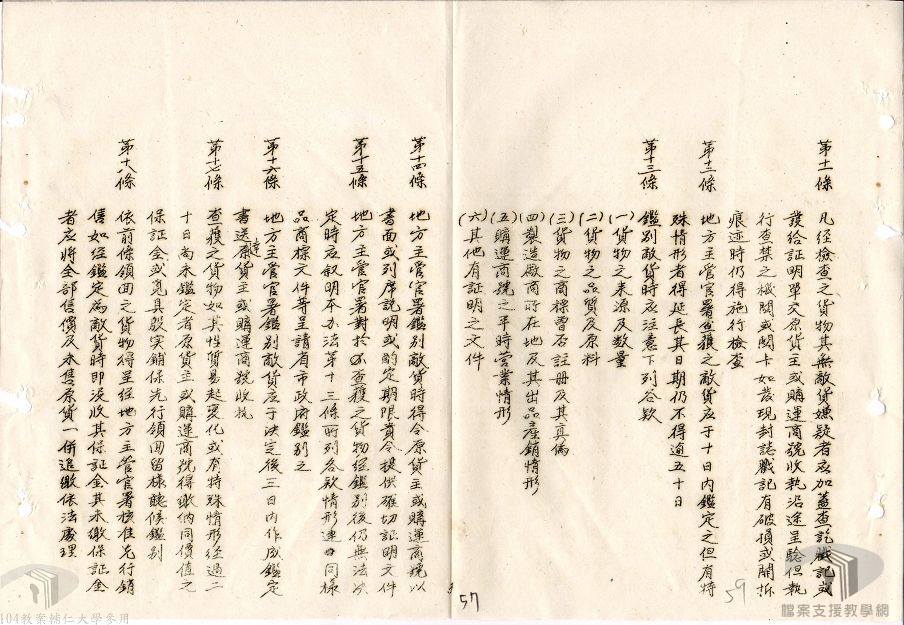 第十一條　凡经檢查之货物其無敵貨嫌疑者应加蓋查訖戳記或
發给証明單交原货主或購運商號收執沿途呈驗但執
行查禁之機關或關卡如發現封誌戳記有破損或開拆
痕迹時仍得施行檢查
第十二條　地方主管官署查獲之敵货应于十日內鑑定之但有特
殊情形者得延長其日期仍不得逾五十日
第十三條　鑑别敵货時应注意下列各欵
(一)货物之来源及数量
(二)货物之品質及原料
(三)货物之商標曾否註册及其真偽
(四)製造廠商所在地及其出品產銷情形
(五)購運商號之平時营業情形
(六)其他有証明之文件
第十四條　地方主管官署鑑别敵貨時得令原货主或購運商號以
書面或列席説明或酌定期限責令提供確切証明文件
第十五條　地方主管官署對於查獲之货物经鑑别後仍無法决
定時应叙明本办法第十三條所列各欵情形連同同樣
品商標文件等呈請省市政府鑑别之
第十六條　地方主管官署鑑别敵货应于决定後三日内作成鑑定
書送達原货主或購運商號收执
第十七條　查獲之货物如其性質易起变化或有特殊情形经過二
十日尚未鑑定者原货主或購運商號得缴納同價值之
保証金或覓具殷实铺保先行領回留樣聽候鑑别
第十八條　依前條領回之货物得呈经地方主管官署核准先行銷
售如经鑑定為敵货時即没收其保証金其未缴保証金
者应將全部售價及未售原货一併追缴依法處理
59
57
檔案支援教學網
104教案輔仁大學參用